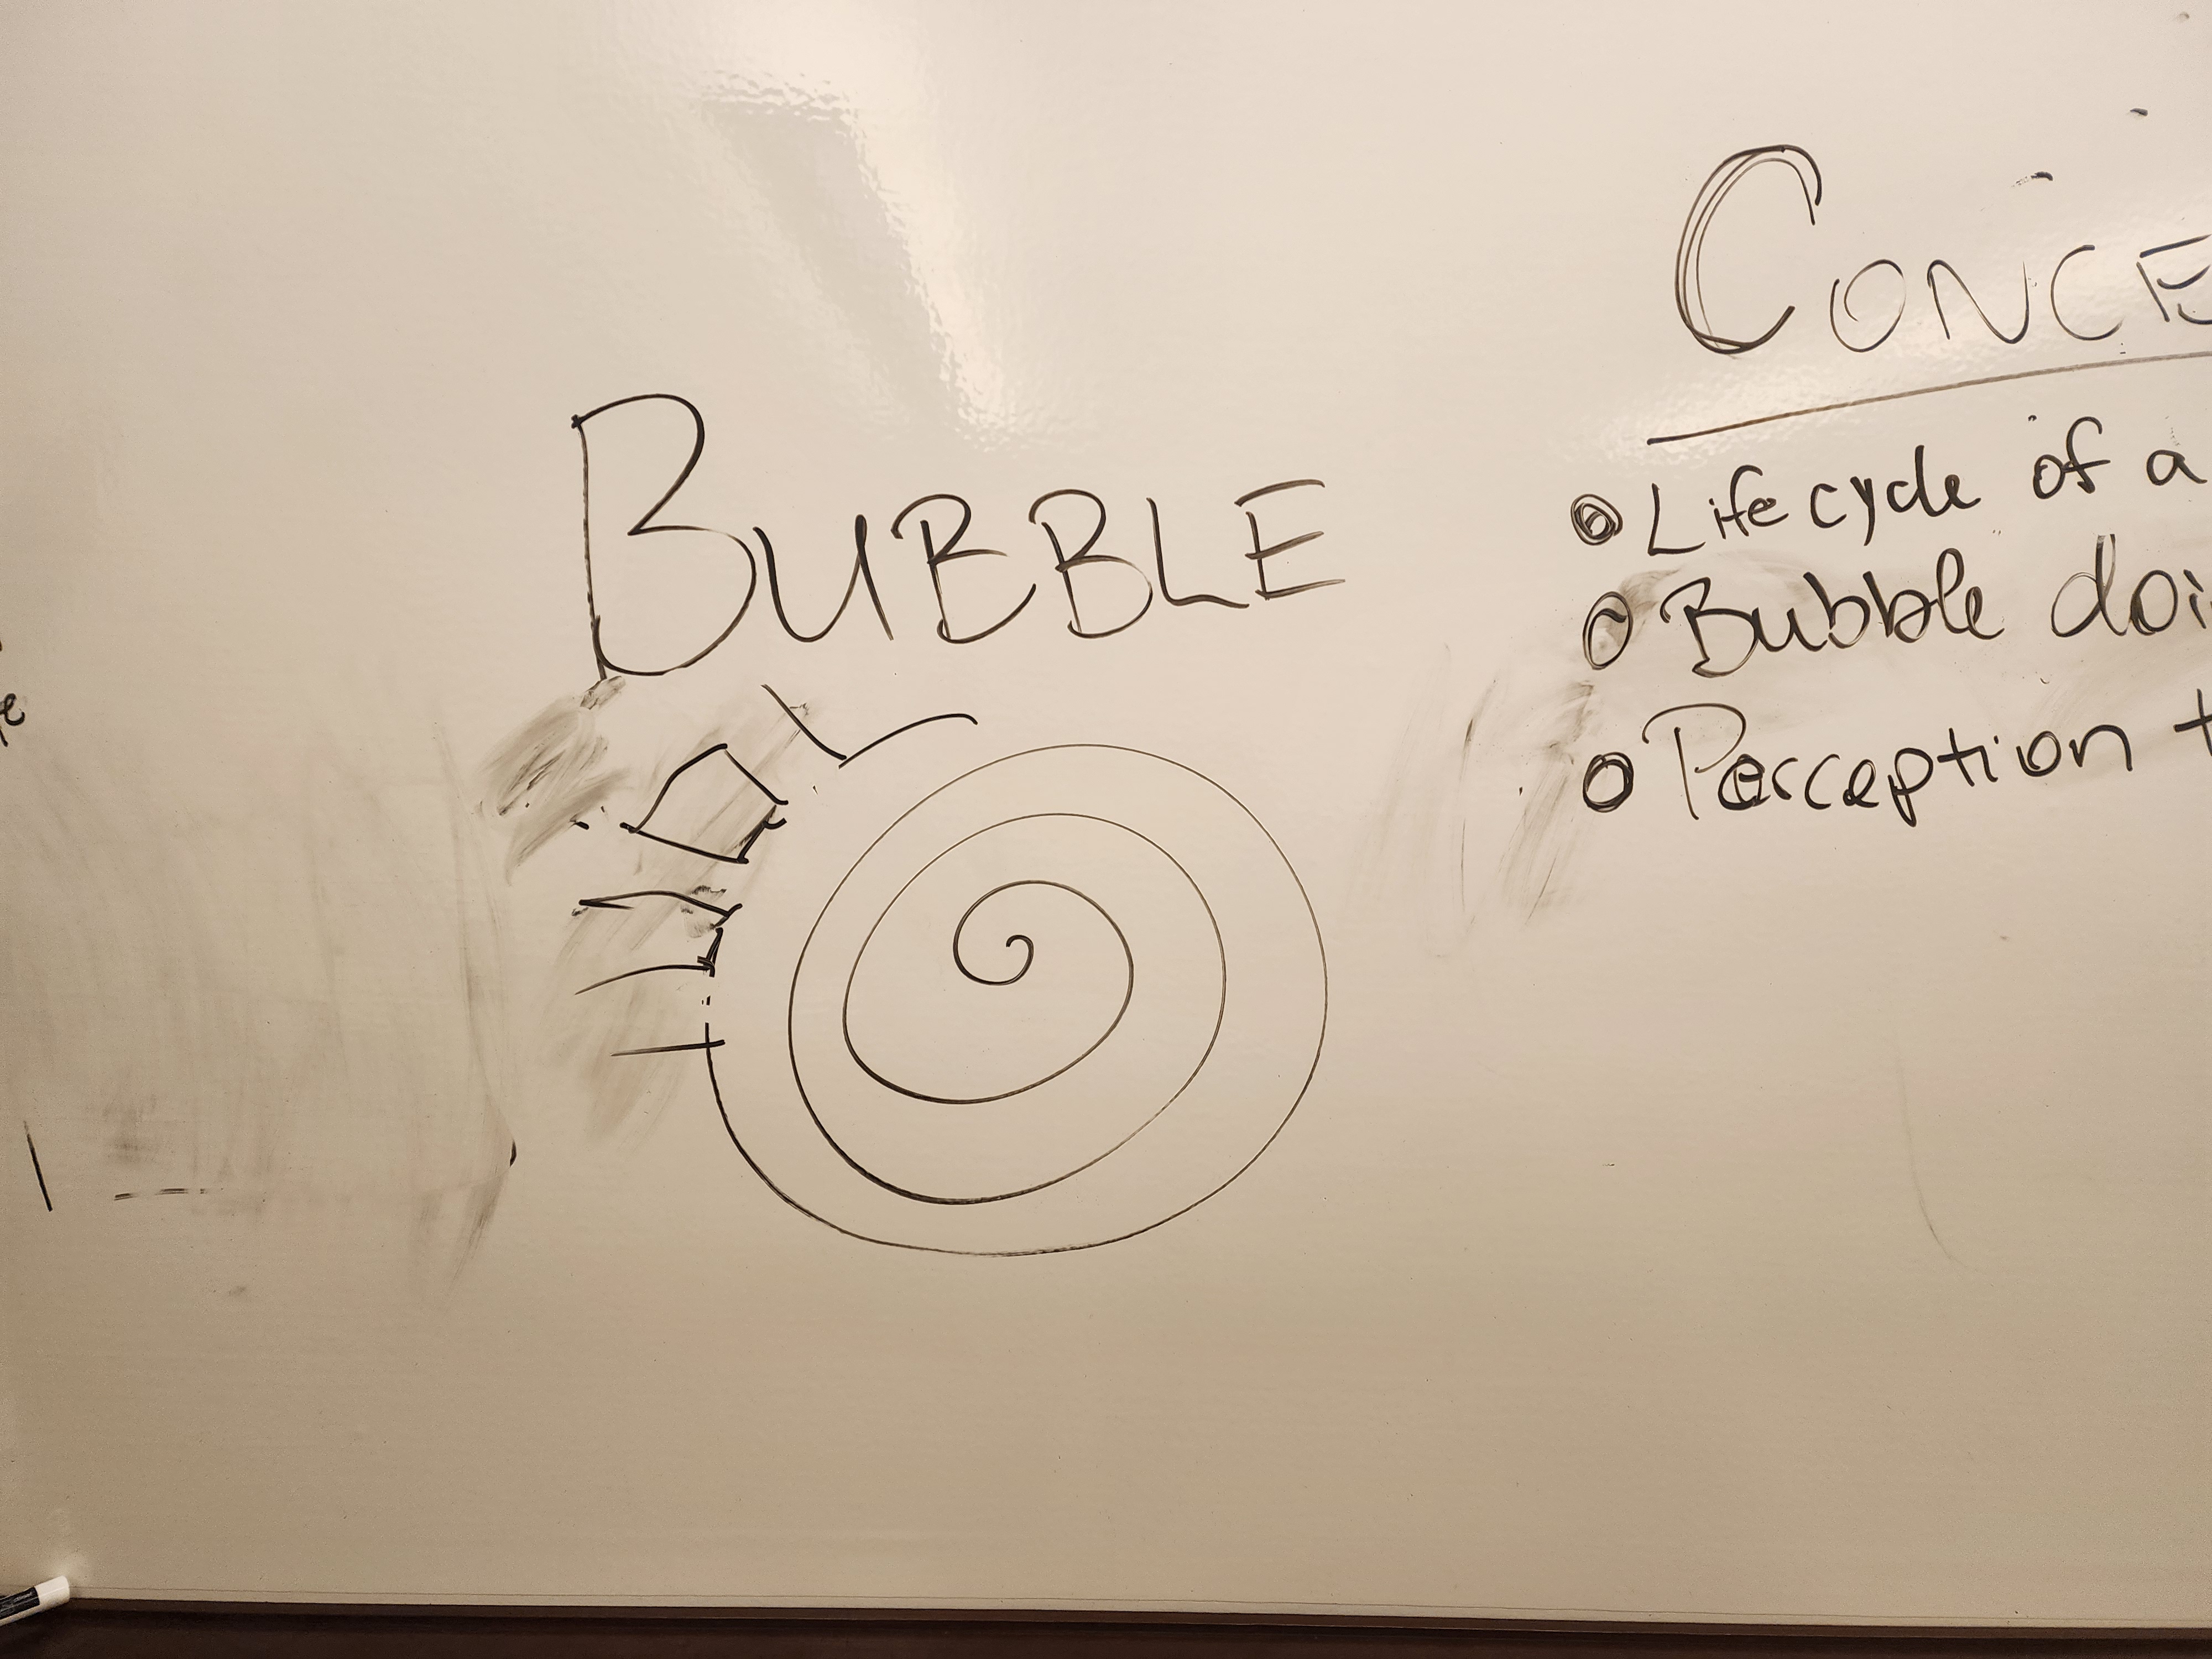 BUBBLE
CONCE
Lifecycle of a
Bubble doi
Perception t